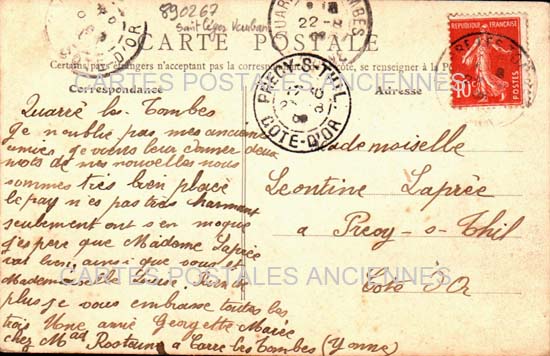 890267
Saint Léger Vauban
CARTE POSTALE
Certains pays étrangers n'acceptant pas la correspondance se renseigner à la
Correspondance
Adresse
REPUBLIQUE FRANÇAISE
10
PRECY-S-THIL
COTE-D'OR
CARTES POSTALES ANCIENNES
CARTES POSTALES ANCIENNES
Quarré les Tombes
Je n'oublie pas mes anciennes
amies je viens leur donner deux
mots de mes nouvelles nous
sommes très bien placé
le pay n'es pas très charmant
seulement ont s'en moque
j'espère que Madame Laprée
vat bien ainsi que vous
Mademoiselle Louise Rien de
plus je vous embrasse toutes les
trois Une amie Georgette Marie
chez Rostaine a Carre les Tombes (Yonne)
Mademoiselle
Leontine Laprée
a Precy-s-Thil
Cote d'Or